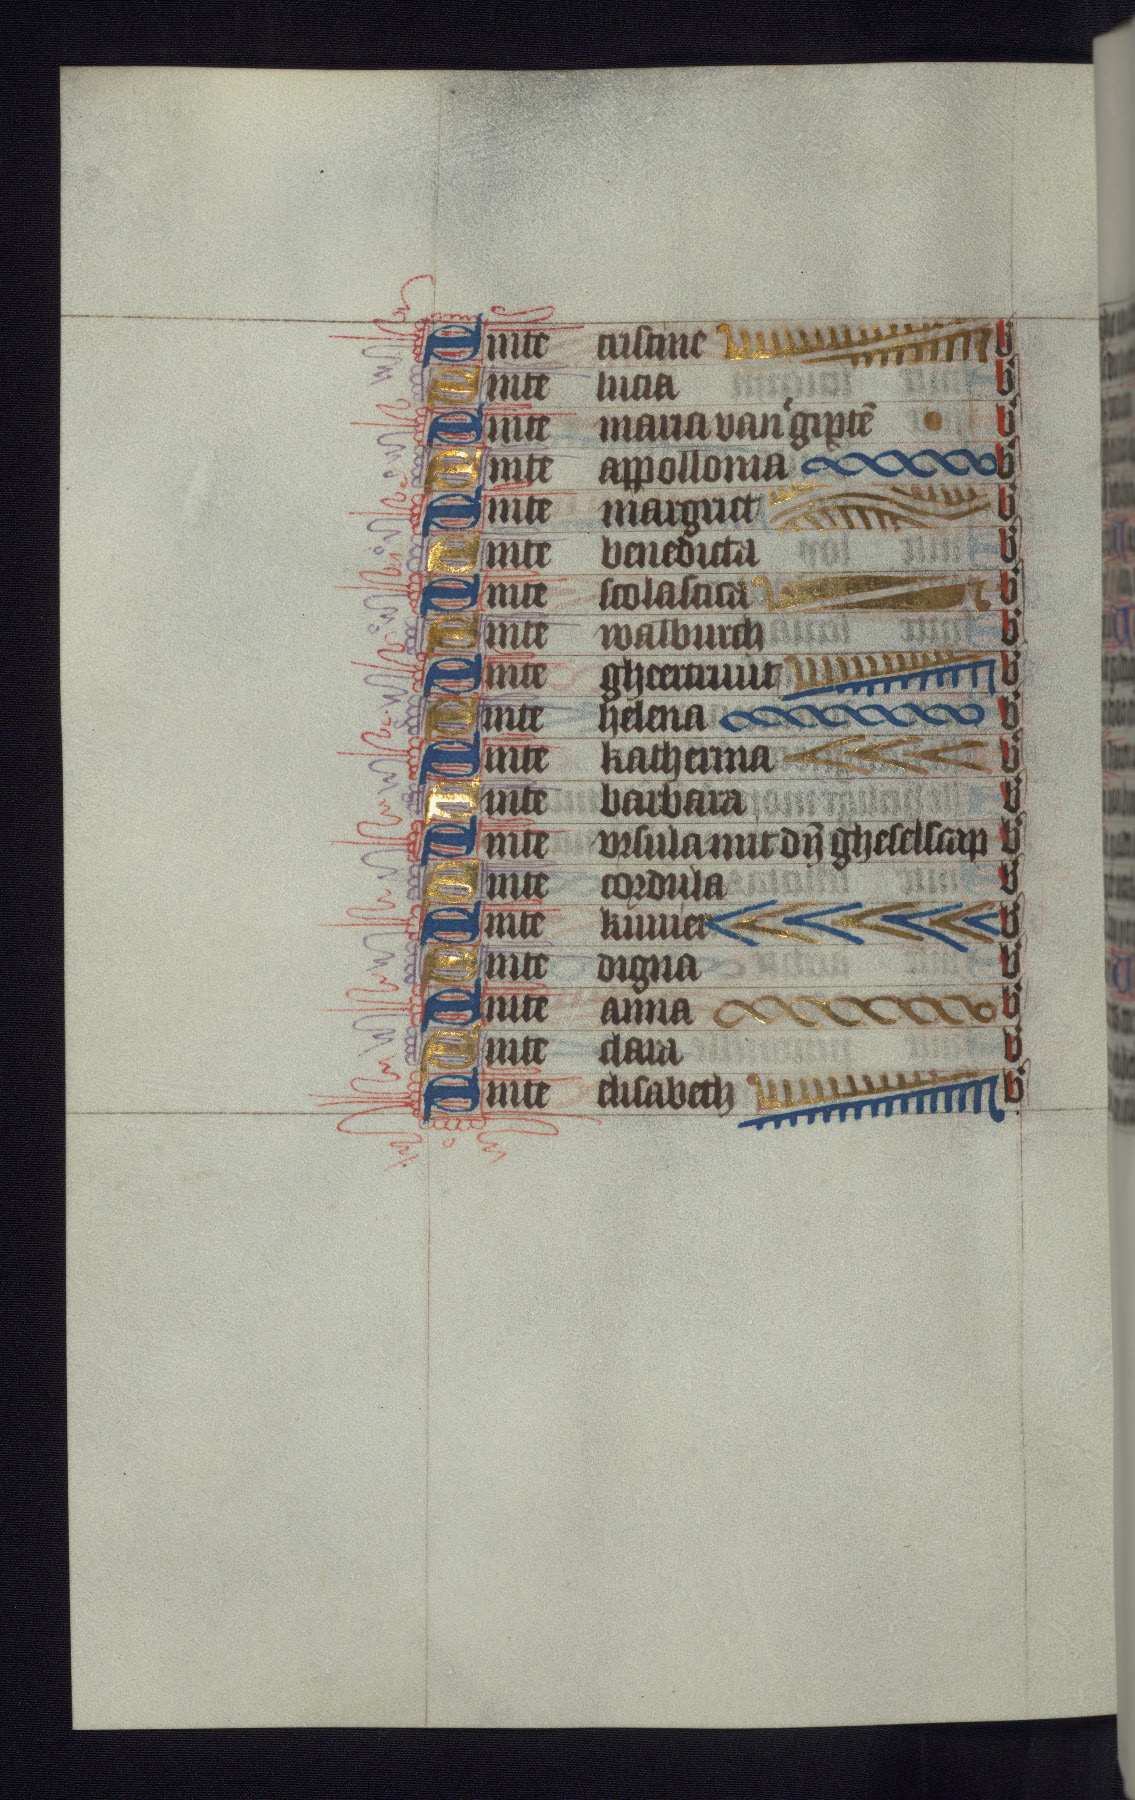 Sinte cristine b
Sinte lucia b
Sinte maria van gipte̅ b
Sinte appollonia b
Sinte margriet b
Sinte benedicta b
Sinte scolastica b
Sinte walburch b
Sinte gheertruut b
Sinte helena b
Sinte katherina b
Sinte barbara b
Sinte vrsula mit dr̅ gheselscap b
Sinte cordula b
Sinte kunier b
Sinte digna b
Sinte anna b
Sinte clara b
Sinte elisabeth b